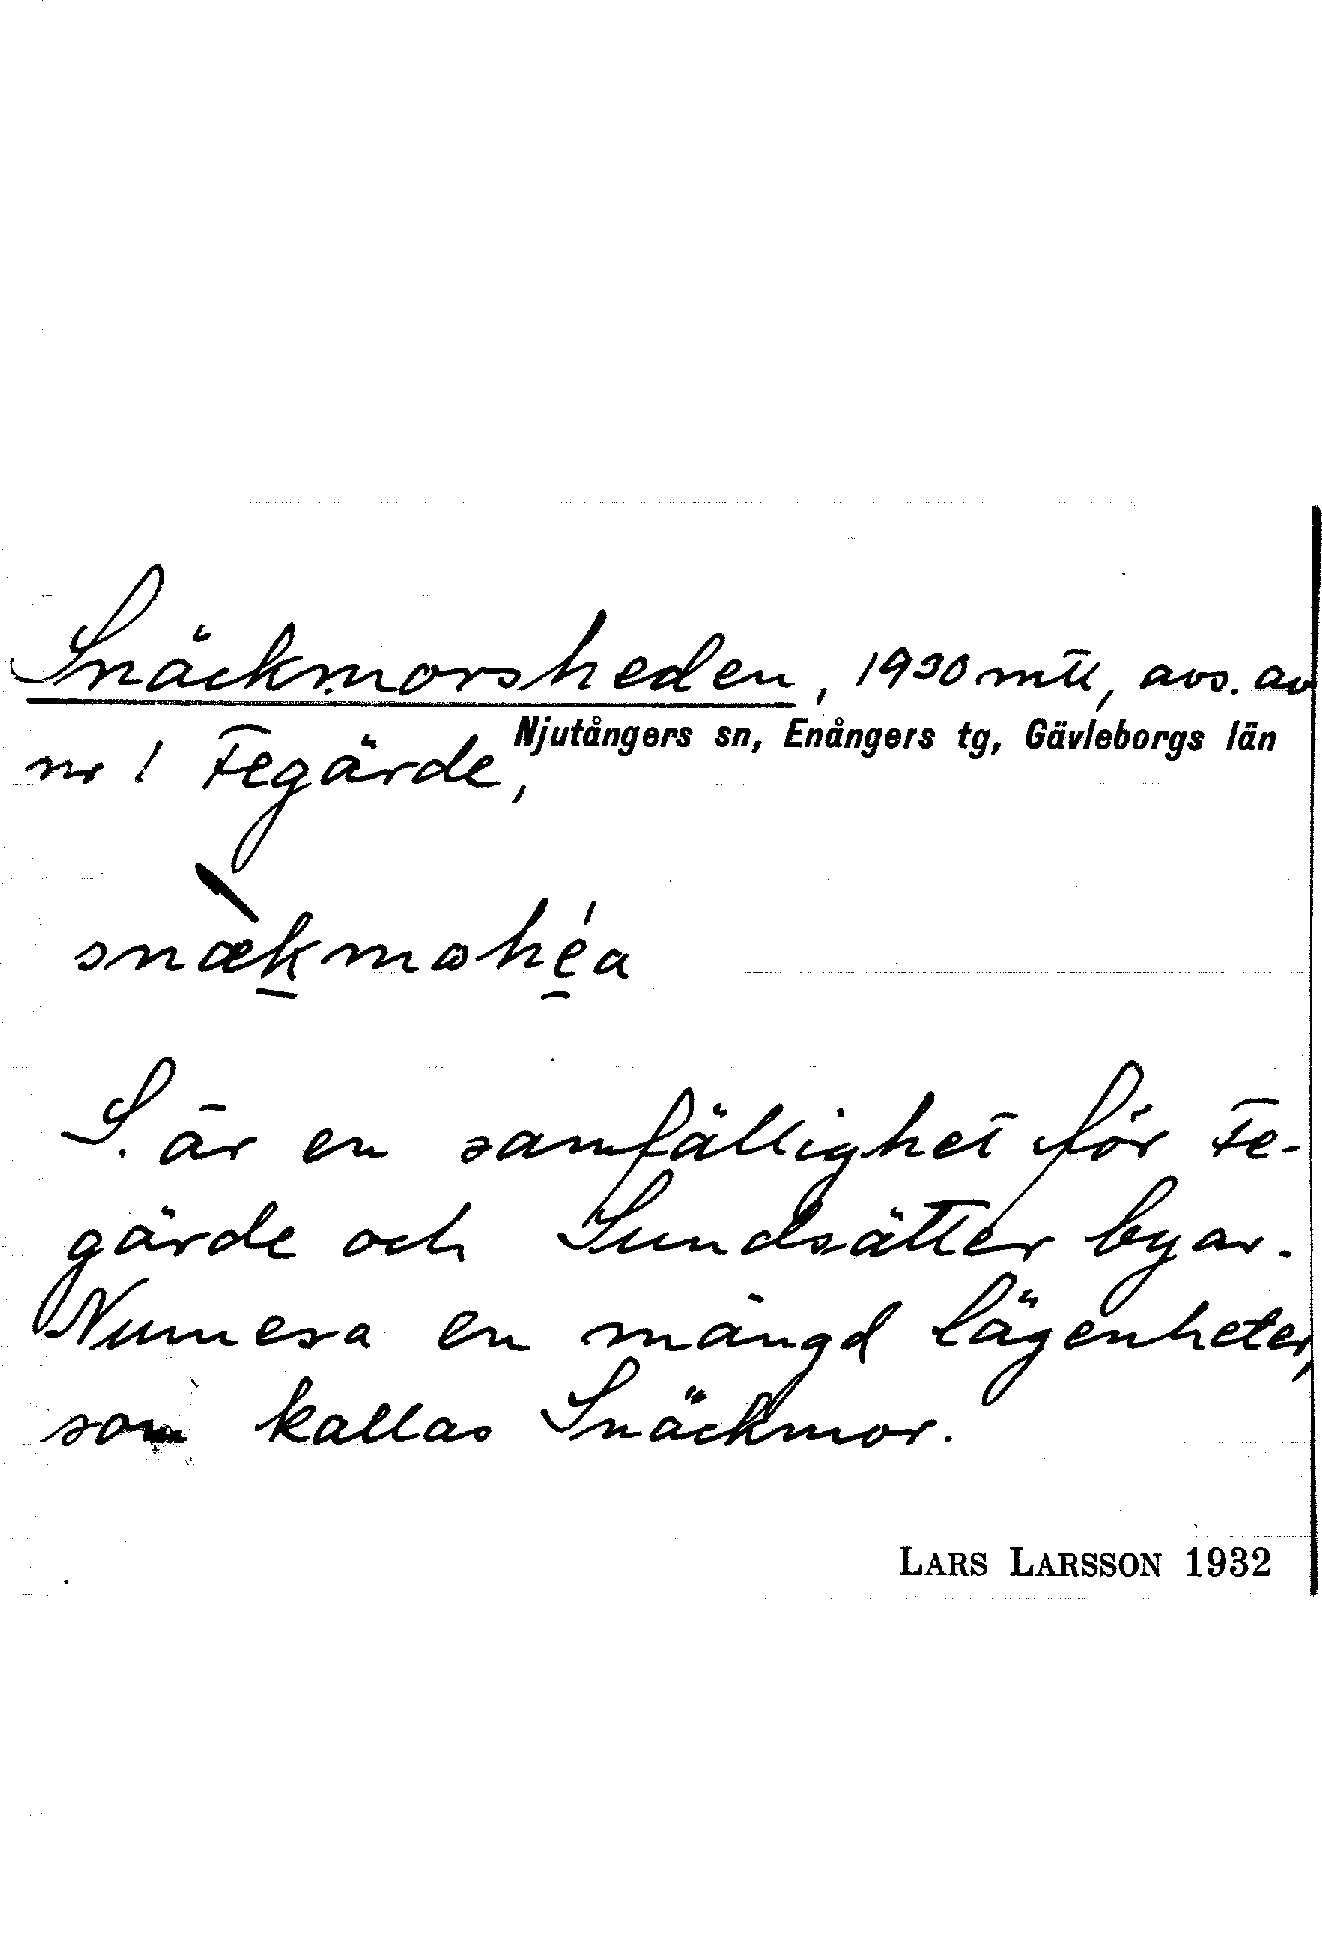 Snäckmorsheden, 1930 mtl, avs. av
Njutångers sn, Enångers tg, Gävleborgs län
nr 1 Fegärde,
snækmωhéa
S. är en samfällighet för Fe-
gärde och Sundsätter byar.
Numera en mängd lägenheter,
som kallas Snäckmor.
LARS LARSSON 1932